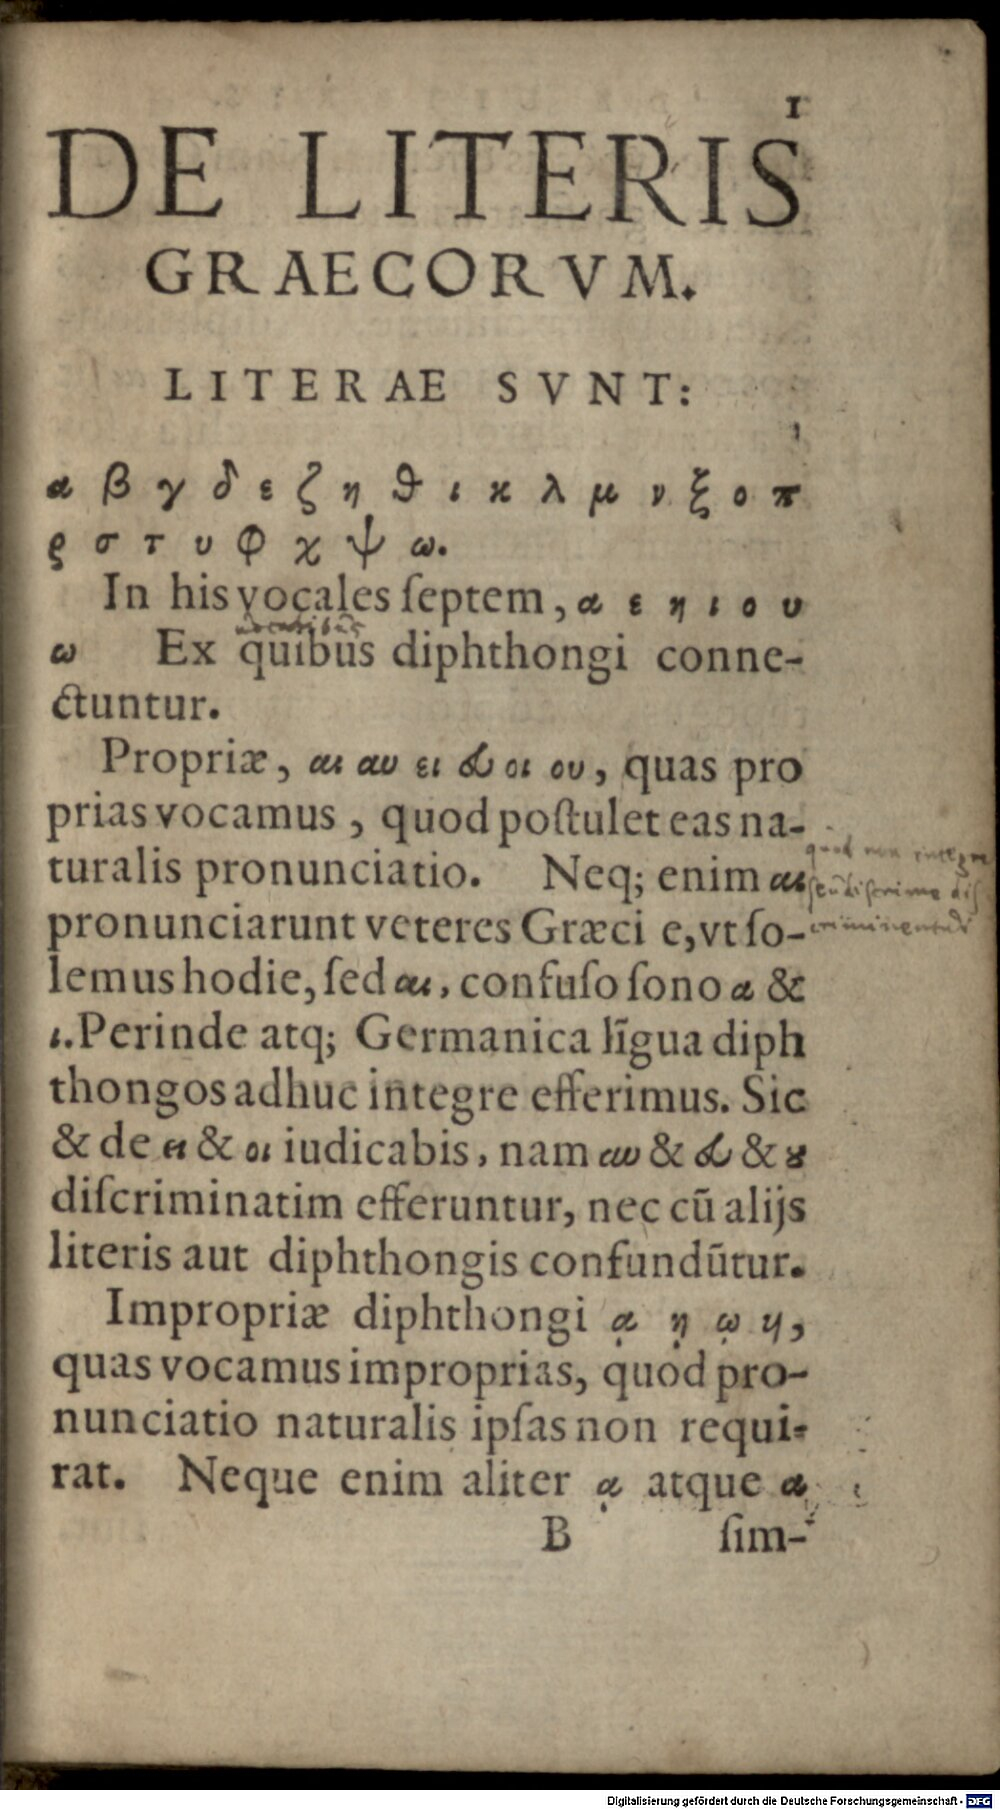 1
DE LITERIS
GRAECORVM.
LITERAE SVNT:
α β γ δ ε ζ η ϑ ι κ λ μ ν ξ ο π
ϱ σ τ υ φ χ ψ ω.
In his vocales ſeptem, α ε η ι ο υ
ω Ex quibus diphthongi conne-
ctuntur.
Propriæ, αι αυ ει ευ οι ου, quas pro
prias vocamus, quod poſtulet eas na-
turalis pronunciatio. Neq; enim αι
quod non integre
pronunciarunt veteres Græci e, vt ſo-
lemus hodie, ſed αι, confuſo ſono α &
ι. Perinde atq; Germanica lĩgua diph
thongos adhuc integre efferimus. Sic
& de ει & οι iudicabis, nam αυ & ευ & ȣ
diſcriminatim efferuntur, nec cũ alijs
literis aut diphthongis confundũtur.
Impropriæ diphthongi ᾳ ῃ ῳ υι,
quas vocamus improprias, quod pro-
nunciatio naturalis ipſas non requi-
rat. Neque enim aliter ᾳ atque α
B ſim-
Digitalisierung gefördert durch die Deutsche Forschungsgemeinschaft - DFG